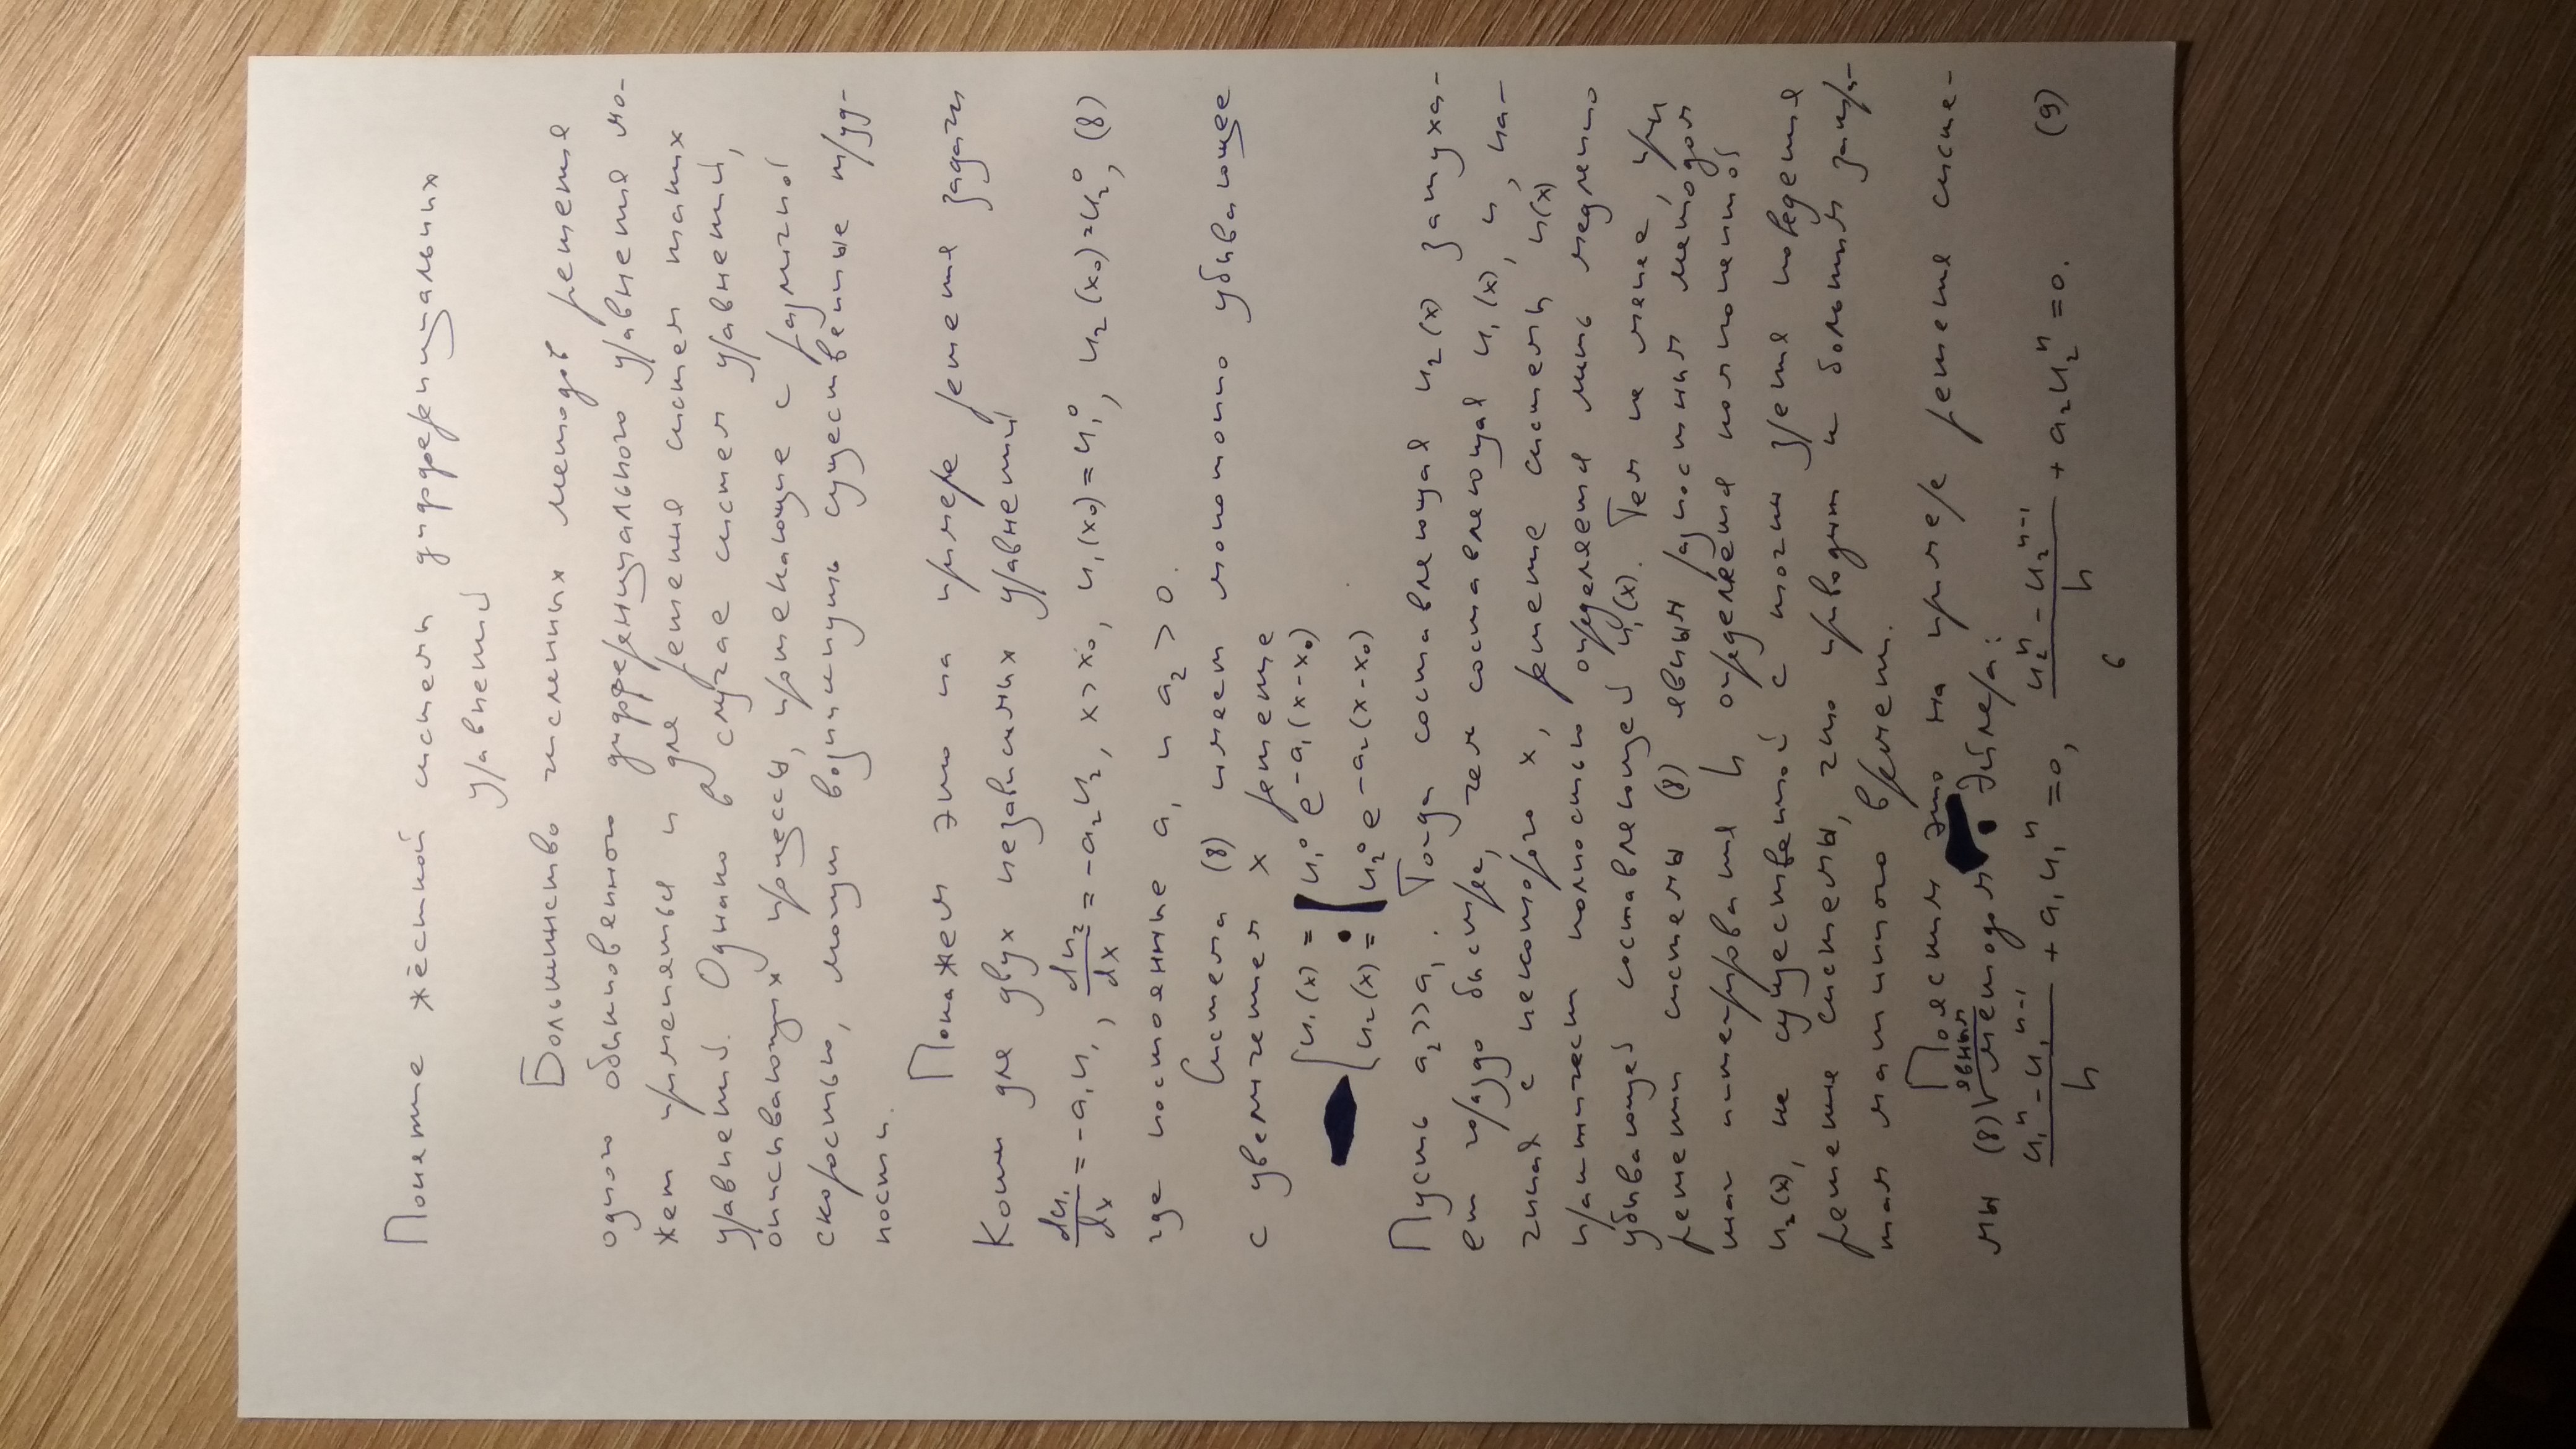 Понятие жёсткой системы дифференциальных
уравнений
Большинство численных методов решения
одного обыкновенного дифференциального уравнения мо-
жет применяться и для решения систем таких
уравнений. Однако в случае систем уравнений,
описывающих процессы, протекающие с различной
скоростью, могут возникнуть существенные труд-
ности.
Покажем это на примере решения задачи
Коши для двух независимых уравнений
du₁/dx = -a₁u₁, du₂/dx = -a₂u₂, x > x₀, u₁(x₀) = u₁⁰, u₂(x₀) = u₂⁰, (8)
где постоянные a₁ и a₂ > 0.
Система (8) имеет монотонно убывающее
с увеличением x решение
u₁(x) = u₁⁰ e^{-a₁(x-x₀)}
u₂(x) = u₂⁰ e^{-a₂(x-x₀)}
Пусть a₂>>a₁. Тогда составляющая u₂(x) затуха-
ет гораздо быстрее, чем составляющая u₁(x), и, на-
чиная с некоторого x, решение системы u(x)
практически полностью определяется лишь медленно
убывающей составляющей u₁(x). Тем не менее, при
решении системы (8) явным разностным методом
шаг интегрирования h определяется компонентой
u₂(x), не существенной с точки зрения поведения
решения системы, что приводит к большим затра-
там машинного времени.
Поясним это на примере решения систе-
мы (8) явным методом Эйлера:
(u₁ⁿ - u₁ⁿ⁻¹)/h + a₁u₁ⁿ = 0, (u₂ⁿ - u₂ⁿ⁻¹)/h + a₂u₂ⁿ = 0. (9)
6